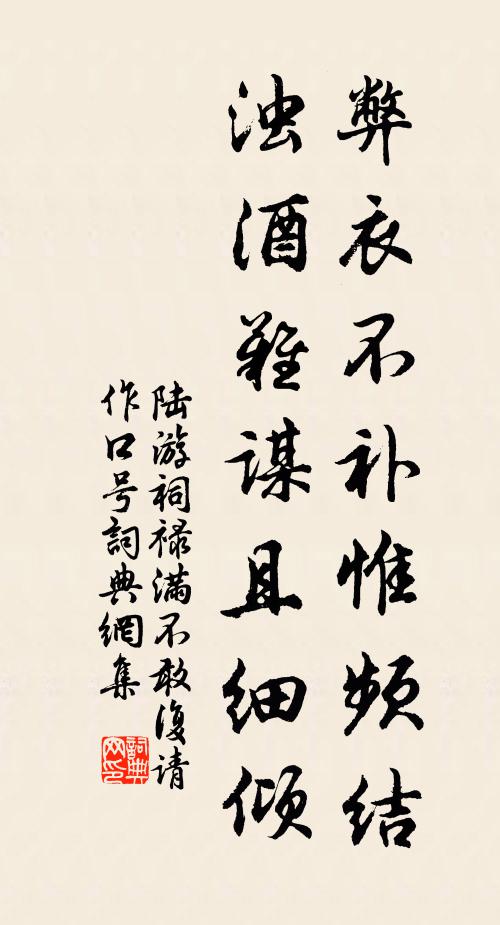 弊衣不补惟频结
浊酒难谋且细倾
陆游祠禄满不敢复请
作口号詞典網集
詞典
网印